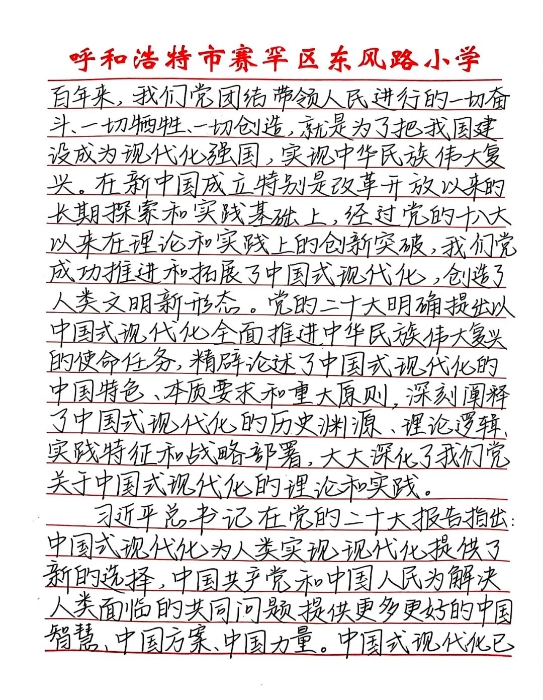 呼和浩特市赛罕区东风路小学
百年来，我们党团结带领人民进行的一切奋
斗、一切牺牲、一切创造，就是为了把我国建
设成为现代化强国，实现中华民族伟大复
兴。在新中国成立特别是改革开放以来的
长期探索和实践基础上，经过党的十八大
以来在理论和实践上的创新突破，我们党
成功推进和拓展了中国式现代化，创造了
人类文明新形态。党的二十大明确提出以
中国式现代化全面推进中华民族伟大复兴
的使命任务，精辟论述了中国式现代化的
中国特色、本质要求和重大原则，深刻阐释
了中国式现代化的历史渊源、理论逻辑、
实践特征和战略部署，大大深化了我们党
关于中国式现代化的理论和实践。
习近平总书记在党的二十大报告指出：
中国式现代化为人类实现现代化提供了
新的选择，中国共产党和中国人民为解决
人类面临的共同问题提供更多更好的中国
智慧、中国方案、中国力量。中国式现代化已